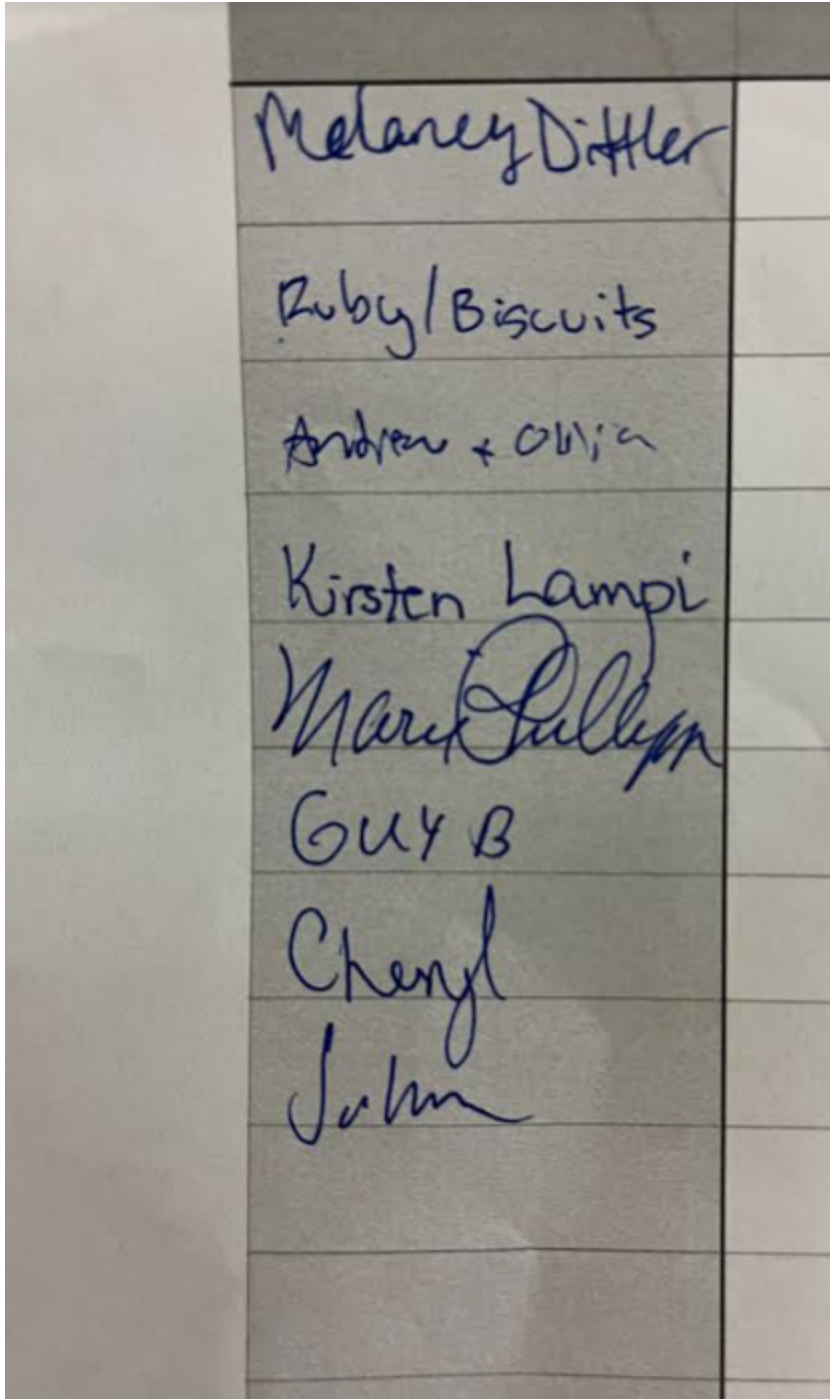 Melaney Dittler
Ruby/Biscuits
Andrew + Olivia
Kirsten Lampi
Guy B
Cheryl
John